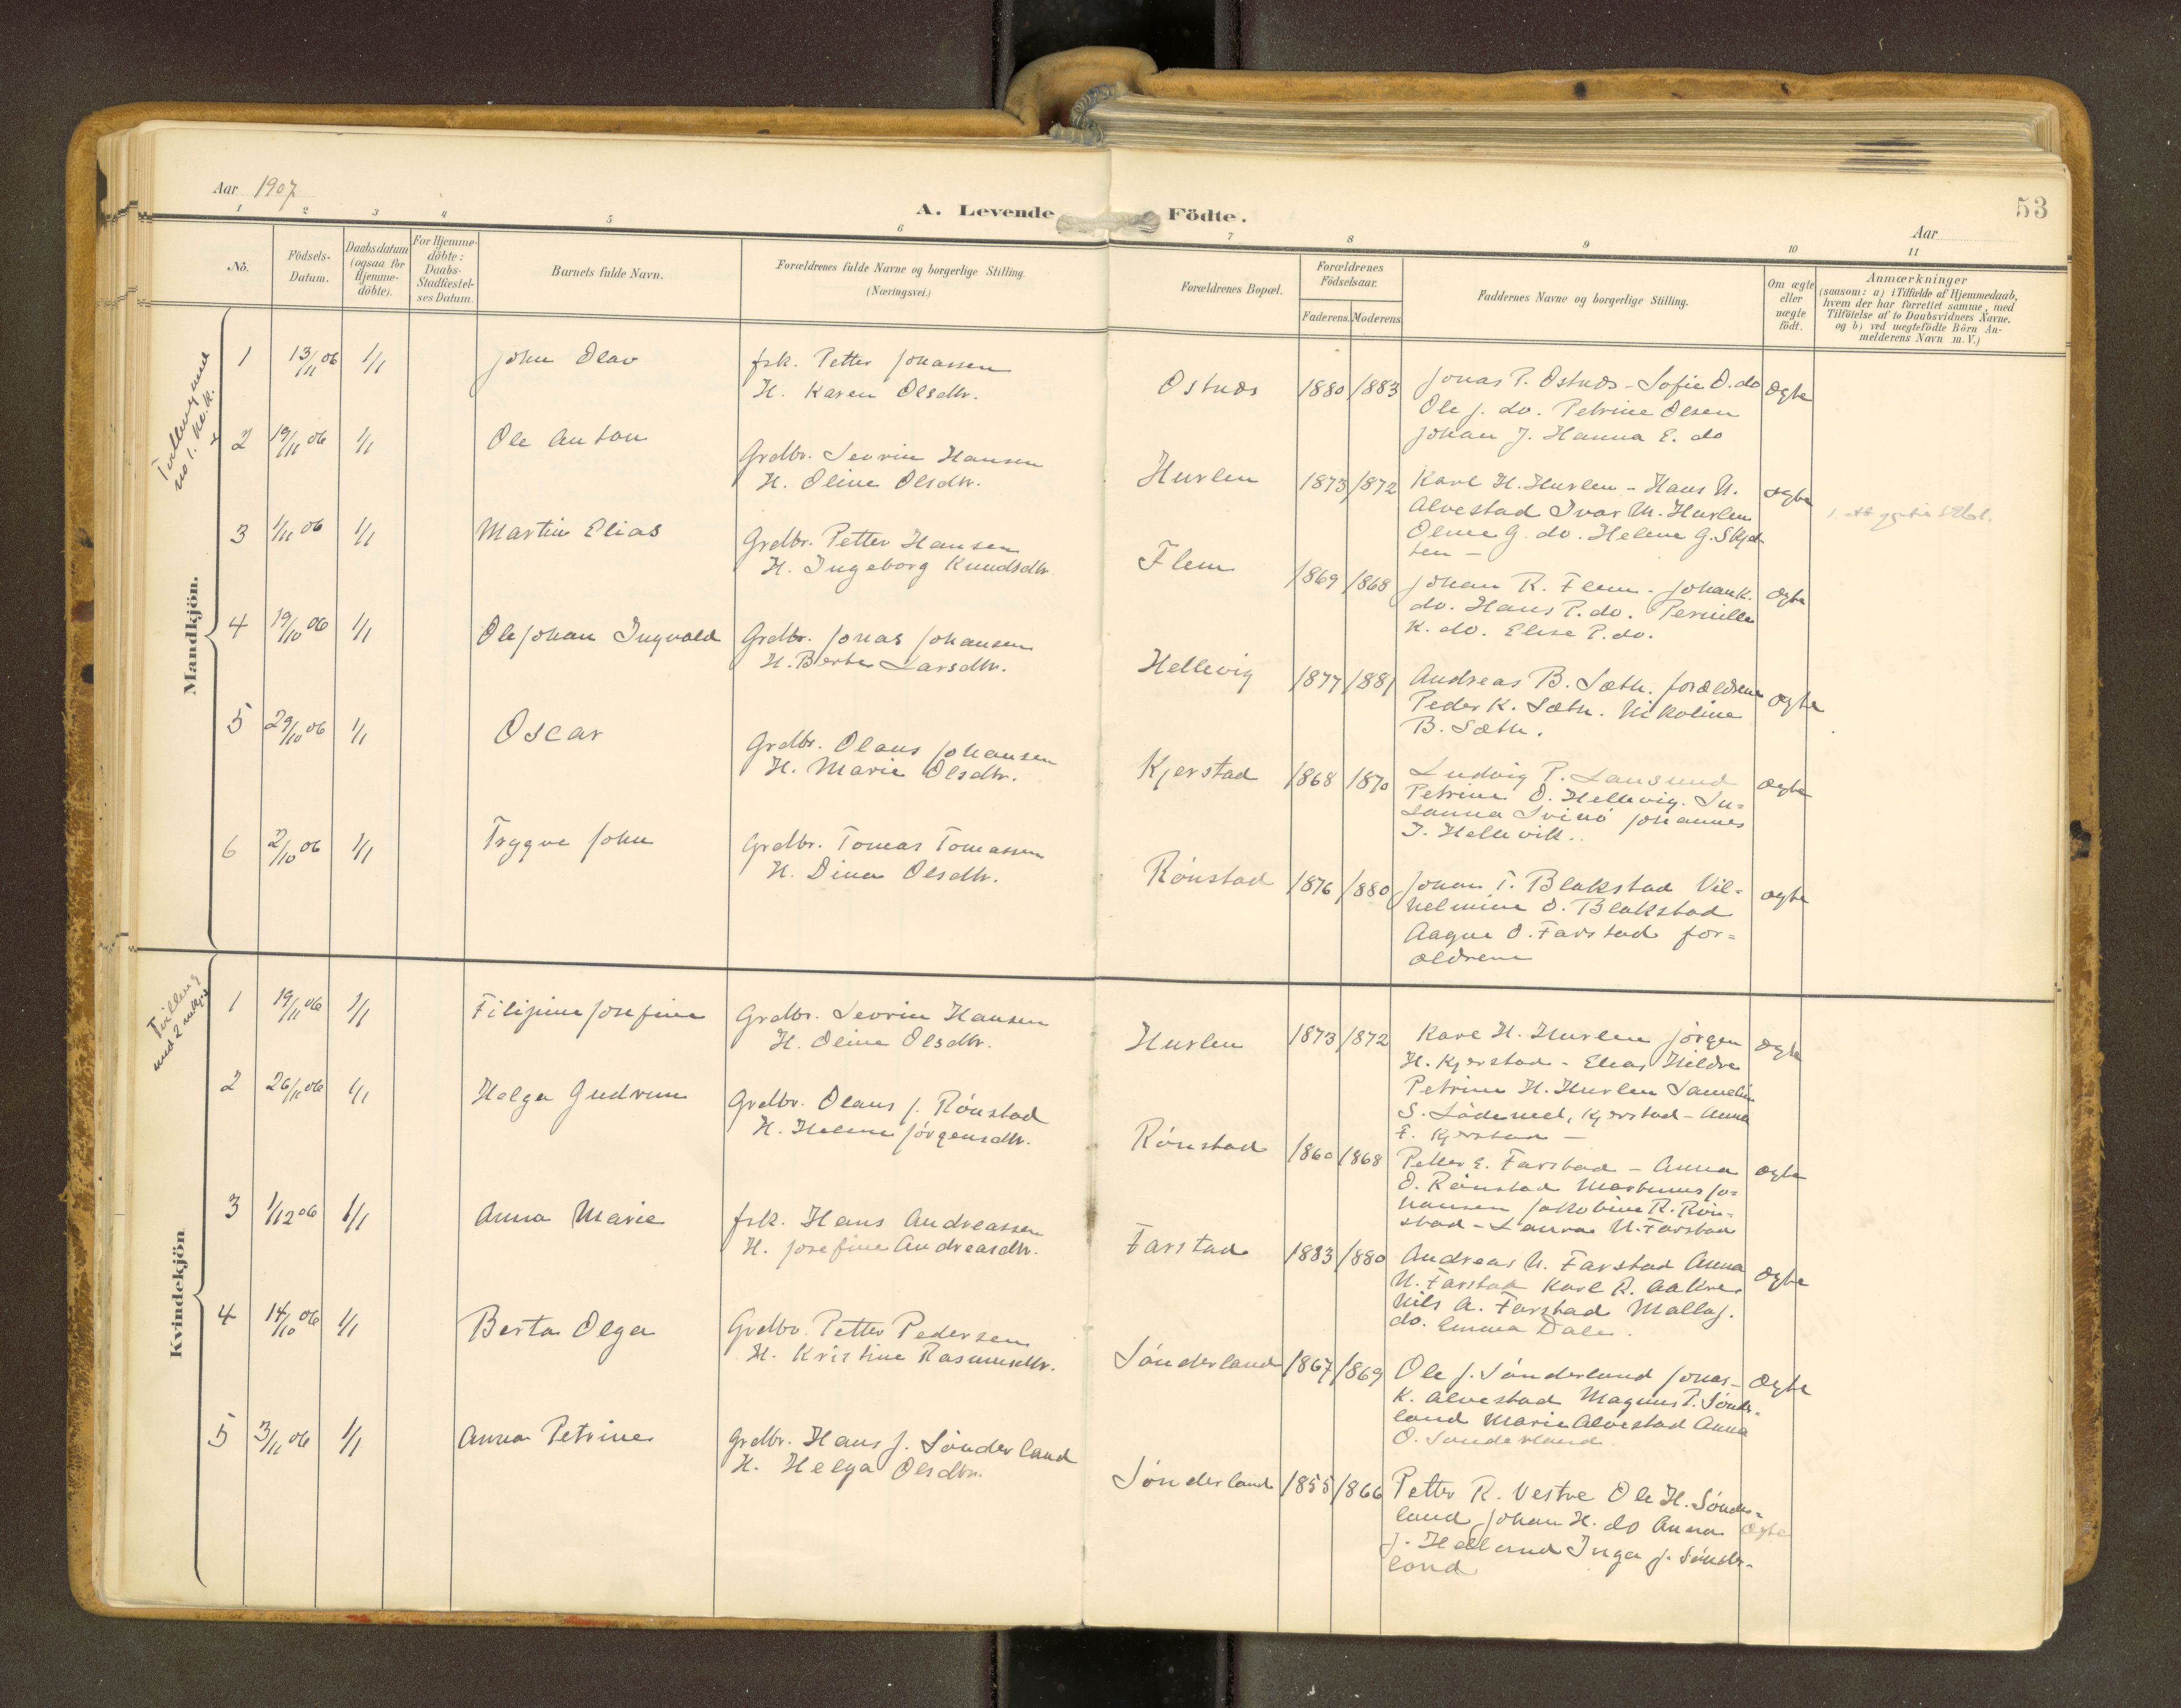 Aar 1907
A. Levende Födte.
53
Aar
1 2 3 4 5 6 7 8 9 10 11
No.
Födsels-
Datum.
Daabsdatum
(ogsaa for
Hjemme-
döbte).
For Hjemme-
döbte:
Daabs-
Stadfæstel-
ses Datum.
Barnets fulde Navn.
Forældrenes fulde Navne og borgerlige Stilling.
(Næringsvei.)
Forældrenes Bopæl.
Forældrenes
Födselsaar.
Faderens. Moderens
Faddernes Navne og borgerlige Stilling.
Om ægte
eller
uægte
födt.
Anmærkninger
(saasom: a) i Tilfælde af Hjemmedaab,
hvem der har forrettet samme, med
Tilföielse af to Daabsvidners Navne,
og b) ved uægtefödte Börn An-
melderens Navn m. V.)
Mandkjön.
1 13/11 06 1/1 John Olav
fsk. Petter Johassen
H. Karen Olsdtr.
Ostnes 1880 1883
Jonas P. Ostnes - Sofie O. do
Ole J. do. Petrine Olsen
Johan J. Hanna E. do
ægte
2 19/11 06 1/1 Ole Anton
Grdbr. Sevrin Hansen
H. Oline Olsdtr.
Hurlen 1873 1872
Karl H. Hurlen - Hans N.
Alvestad Ivar M. Hurlen
Oline G. do. Helene G. Skjel-
ten -
ægte
3 1/11 06 1/1 Martin Elias
Grdbr. Petter Hansen
H. Ingeborg Knudsdtr
Flem 1869 1868
Johan R. Flem - Johan K.
do. Hans P. do. Pernille
K. do. Elise P. do.
ægte
4 19/10 06 1/1 Ole Johan Ingvald
Grdbr. Jonas Johansen
H. Berte Larsdtr.
Hellevig 1877 1881
Andreas B. Sæth. forældrene
Peder K. Sæth. Nikoline
B. Sæth.
ægte
5 29/10 06 1/1 Oscar
Grdbr. Olaus Johansen
H. Marie Olsdtr.
Kjerstad 1868 1870
Ludvig P. Longsund
Petrine O. Hellevig. Su-
sanna Svinö Johannes
J. Hellevik.
ægte
6 2/10 06 1/1 Trygve John
Grdbr. Tomas Tomassen
H. Dina Olsdtr.
Rönstad 1876 1880
Johan T. Blakstad Vil-
helmine O. Blakstad
Aagne O. Farstad for-
ældrene
ægte
Kvindekjön
Tvilling
med 2
1 19/11 06 1/1 Filipine Josefine
Grdbr. Sevrin Hansen
H. Oline Olsdtr.
Hurlen 1873 1872
Karl H. Hurlen Jörgen
H. Kjerstad - Elias Hildre
Petrine H. Hurlen
S. Kjerstad - Anna
F. Kjerstad -
ægte
2 26/11 06 1/1 Helga Gudrun
Grdbr. Olaus J. Rönstad
H. Helene Jörgensdtr.
Rönstad 1860 1868
Petter E. Farstad - Anna
O. Rönstad Martinus Jo-
hansen Jakobine R. Rön-
stad - Laura N. Farstad
ægte
3 1/12 06 1/1 Anna Marie
fsk. Hans Andreassen
H. Josefine Andreasdtr.
Farstad 1883 1880
Andreas N. Farstad Anna
N. Farstad Karl R. Aakre
Nils A. Farstad Malla J.
do. Emma Dale.
ægte
4 14/10 06 1/1 Berta Olga
Grdbr. Petter Pedersen
H. Kristine Rasmusdtr.
Sönderland 1867 1869
Ole J. Sönderland Jonas
K. Alvestad Magnus P. Sönder-
land Marie Alvestad Anna
O. Sönderland
ægte
5 3/11 06 1/1 Anna Petrine
Grdbr. Hans J. Sönderland
H. Helga Olsdtr.
Sönderland 1855 1866
Petter R. Vestre Ole H. Sönder-
land Johan H. do Anna
J. Helland Inga J. Sönder-
land
ægte